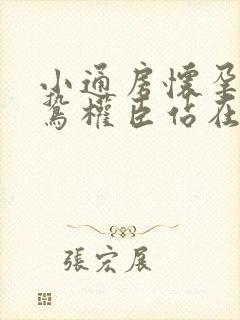 小通房懷孕
鷙權臣佔在
張宏展